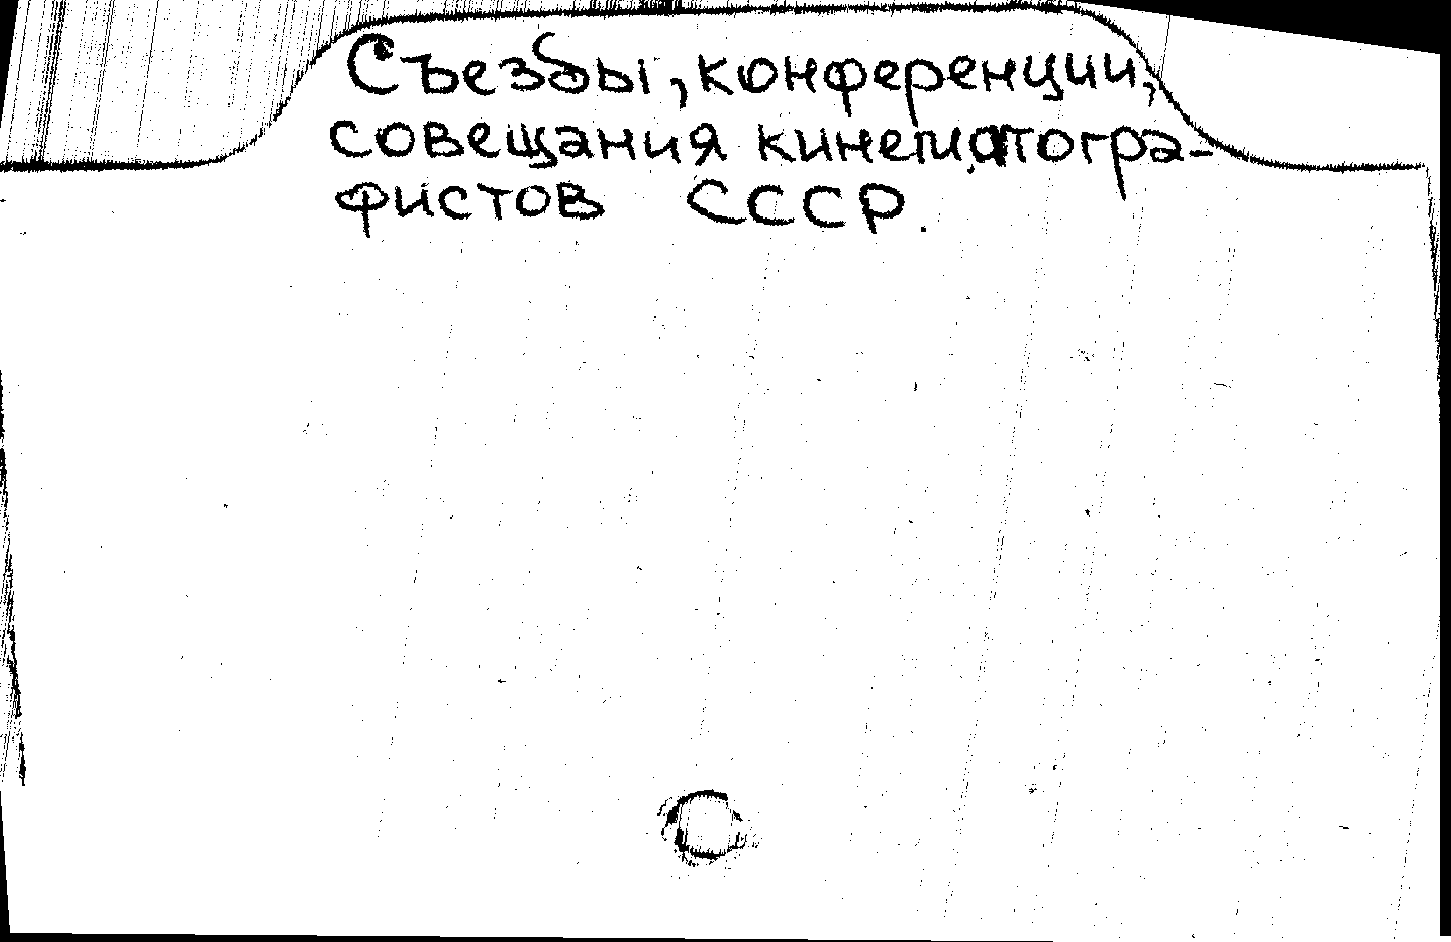 Съезды, конференции,
совещания кинематогра-
фистов СССР.